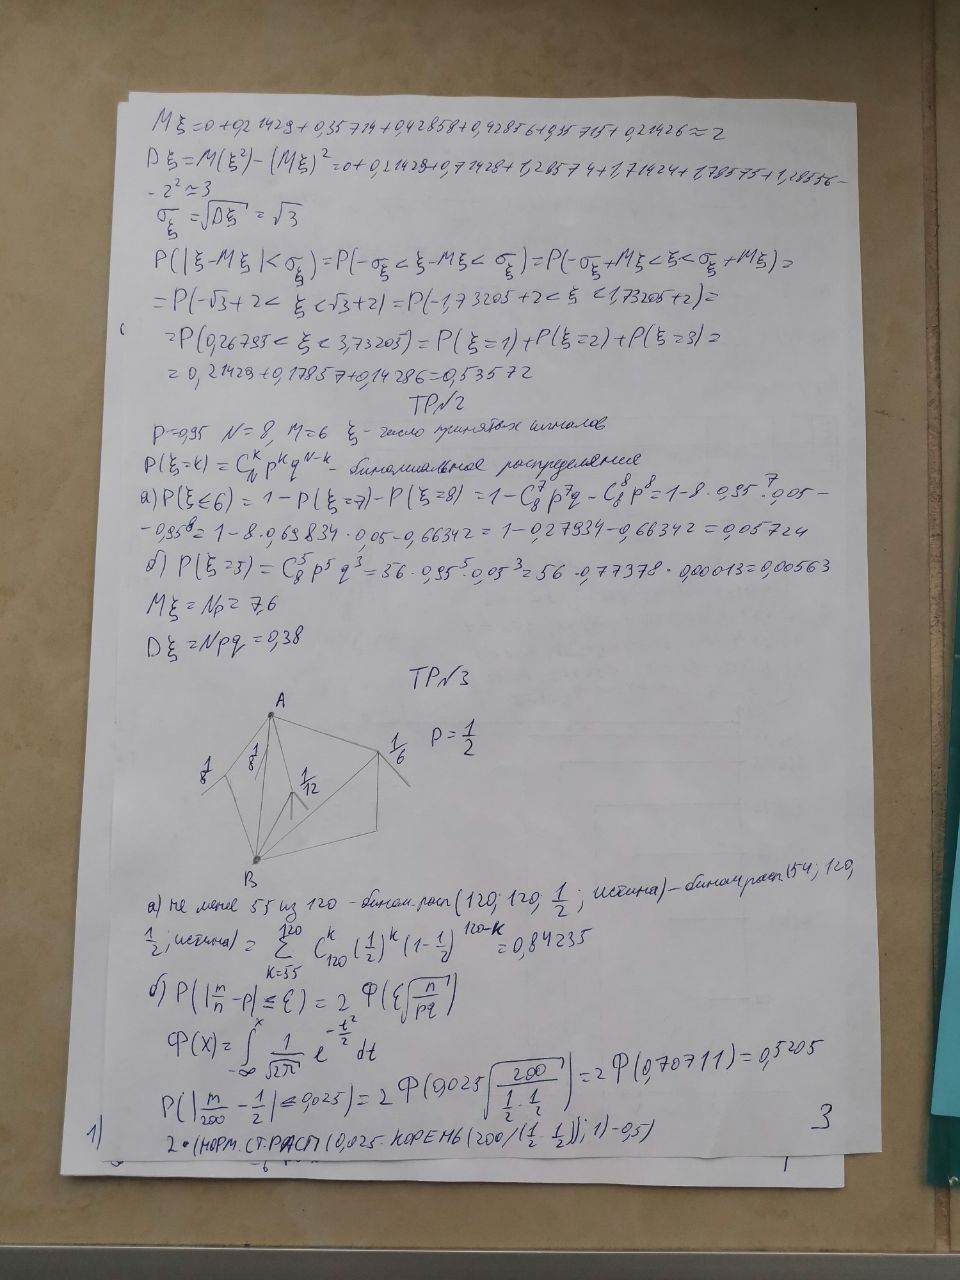 Mξ=0+0,21429+0,35714+0,42858+0,42856+0,35715+0,21426≈2
Dξ=M(ξ²)-(Mξ)²=0+0,21429+0,71428+1,28574+1,71424+1,78575+1,28556-
-2²≈3
σ_ξ=√Dξ=√3
P(|ξ-Mξ|<σ_ξ)=P(-σ_ξ<ξ-Mξ<σ_ξ)=P(-σ_ξ+Mξ<ξ<σ_ξ+Mξ)=
=P(-√3+2<ξ<√3+2)=P(-1,73205+2<ξ<1,73205+2)=
=P(0,26795<ξ<3,73205)=P(ξ=1)+P(ξ=2)+P(ξ=3)=
=0,21429+0,17857+0,14286=0,53572
ТР№2
P=0,95 N=8, M=6 ξ - число принятых сигналов
P(ξ=k)=C_N^k p^k q^{N-k} - биномиальное распределение
а) P(ξ≤6)=1-P(ξ=7)-P(ξ=8)=1-C_8^7 p^7 q-C_8^8 p^8=1-8·0,95^7·0,05-
-0,95^8=1-8·0,69834·0,05-0,66342=1-0,27934-0,66342=0,05724
б) P(ξ=5)=C_8^5 p^5 q^3=56·0,95^5·0,05^3=56·0,77378·0,00013=0,00563
Mξ=Np=7,6
Dξ=Npq=0,38
ТР№3
A
1/8
1/8
1/12
1/6
P=1/2
B
а) не менее 55 из 120 - бином.расп(120; 120, 1/2; истина)-бином.расп(54; 120,
1/2; истина)=∑_{k=55}^{120} C_120^k (1/2)^k (1-1/2)^{120-k}=0,84235
б) P(|m/n-p|≤ξ)=2Ф(ξ√(n/pq))
Ф(x)=∫_{-∞}^x 1/√2π e^{-t²/2} dt
P(|m/200-1/2|≤0,025)=2Ф(0,025√(200/(1/2·1/2)))=2Ф(0,70711)=0,5205
2·(НОРМ.СТ.РАСП(0,025·КОРЕНЬ(200/(1/2·1/2));1)-0,5)
1)
3